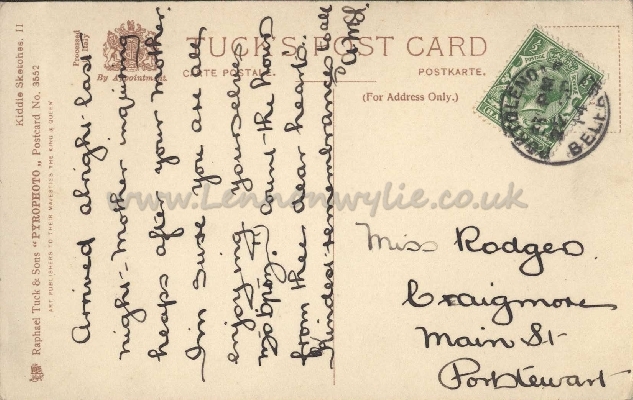 Kiddie Sketches. II
Raphael Tuck & Sons "PYROPHOTO" Postcard No. 3552
ART PUBLISHERS TO THEIR MAJESTIES THE KING & QUEEN
Processed
Italy
By Appointment
TUCK'S POST CARD
CARTE POSTALE.
POSTKARTE.
(For Address Only.)
BELF
www.Lennonwylie.co.uk
Arrived alright last
night - Mother inquiring
heaps after your mother.
I'm sure you are all
enjoying yourselves
count the hours
from thee dear hearts.
Kindest remembrances to all
Miss Rodgers
Craigmore
Main St
Portstewart